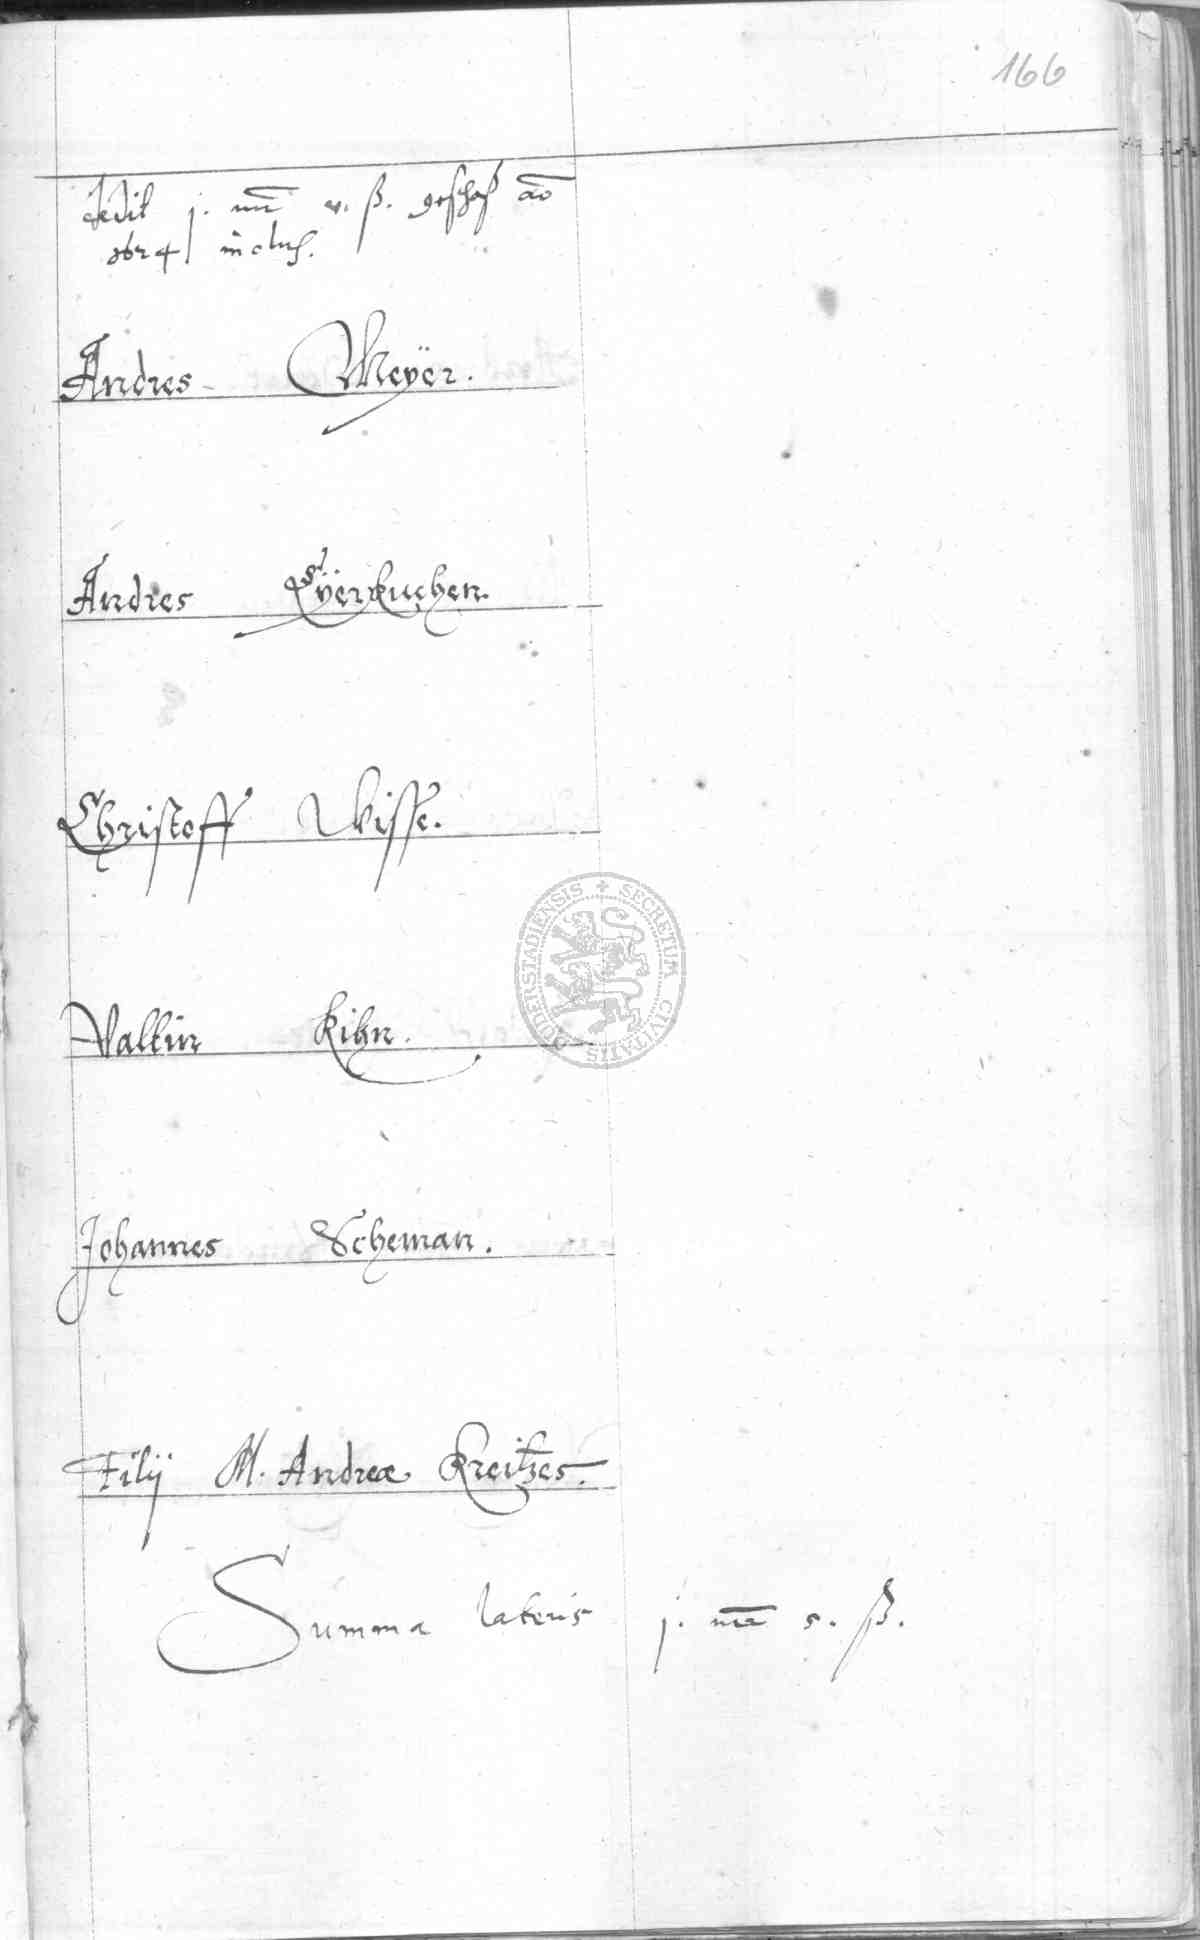 166
dedit j. mr v. ß. geschoß ao
1624 inclus.
Andres Meyer.
Andres Eÿerkuchen.
Christoff Wisse.
Valtin Kihn.
Johannes Scheman.
Filij M. Andreæ Kreitzes.
Summa lateris j. mr 5. ß.
SECRETUM CIVITATIS DUDERSTADIENSIS